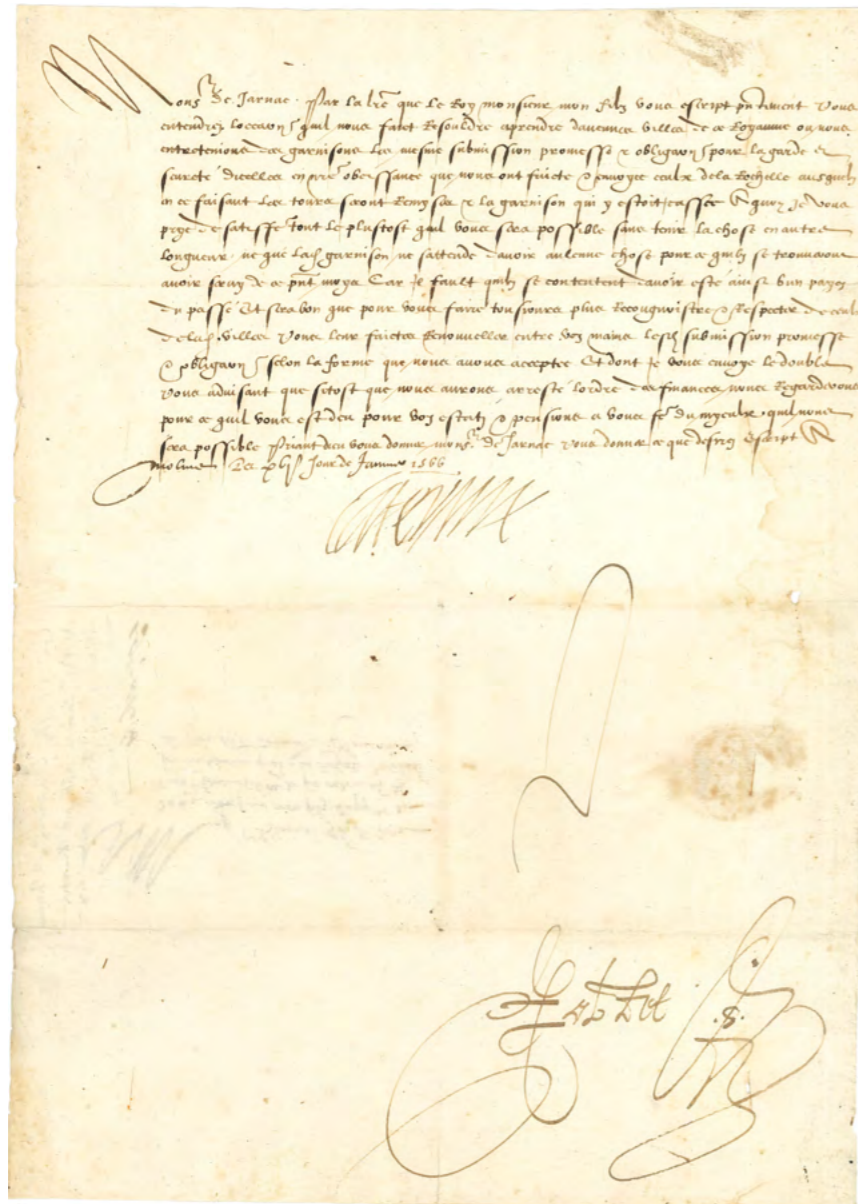 Mons.r de Jarnac. Par la lre que le Roy monsieur mon filz vous escript pntement vous
entendrez loccaon quil nous faict Resouldre aprendre daucunes villes de ce Royaume ou nous
entretenions des garnisons les mesme submission promesse & obligaon pour la garde et
seureté dicelles en nre obeissance que nous ont faicte & envoyee ceulx de la Rochelle ausquelz
en ce faisant les tours seront Remyses & la garnison qui y estoit cassee A quoy Je vous
prye de satisffe tout le plustost quil vous sera possible sans tenir la chose en autre
longueur ne que lad garnison ne sattende davoir aulcune chose pour ce quilz se trouveront
avoir servy de ce pnt moys Car Il fault quilz se contentent davoir esté ainsi bien payez
du passé Et sera bon que pour vous faire tousiours plus Recougnoistre & Respecter de ceulx
desd villes vous leur faictes Renouveller entre voz mains lesd submission promesse
& obligaon selon la forme que nous avons acceptee Et dont Je vous envoye le double
Vous advisant que sitost que nous aurons arresté lordre des finances nous Regarderons
pour ce quil vous est deu pour voz estatz & pensions a vous fe du myeulx quil nous
sera possible Priant dieu vous donner mons.r de Jarnac vous donner ce que desirez Escript A
molins Le jour de Janvier 1566
Caterine